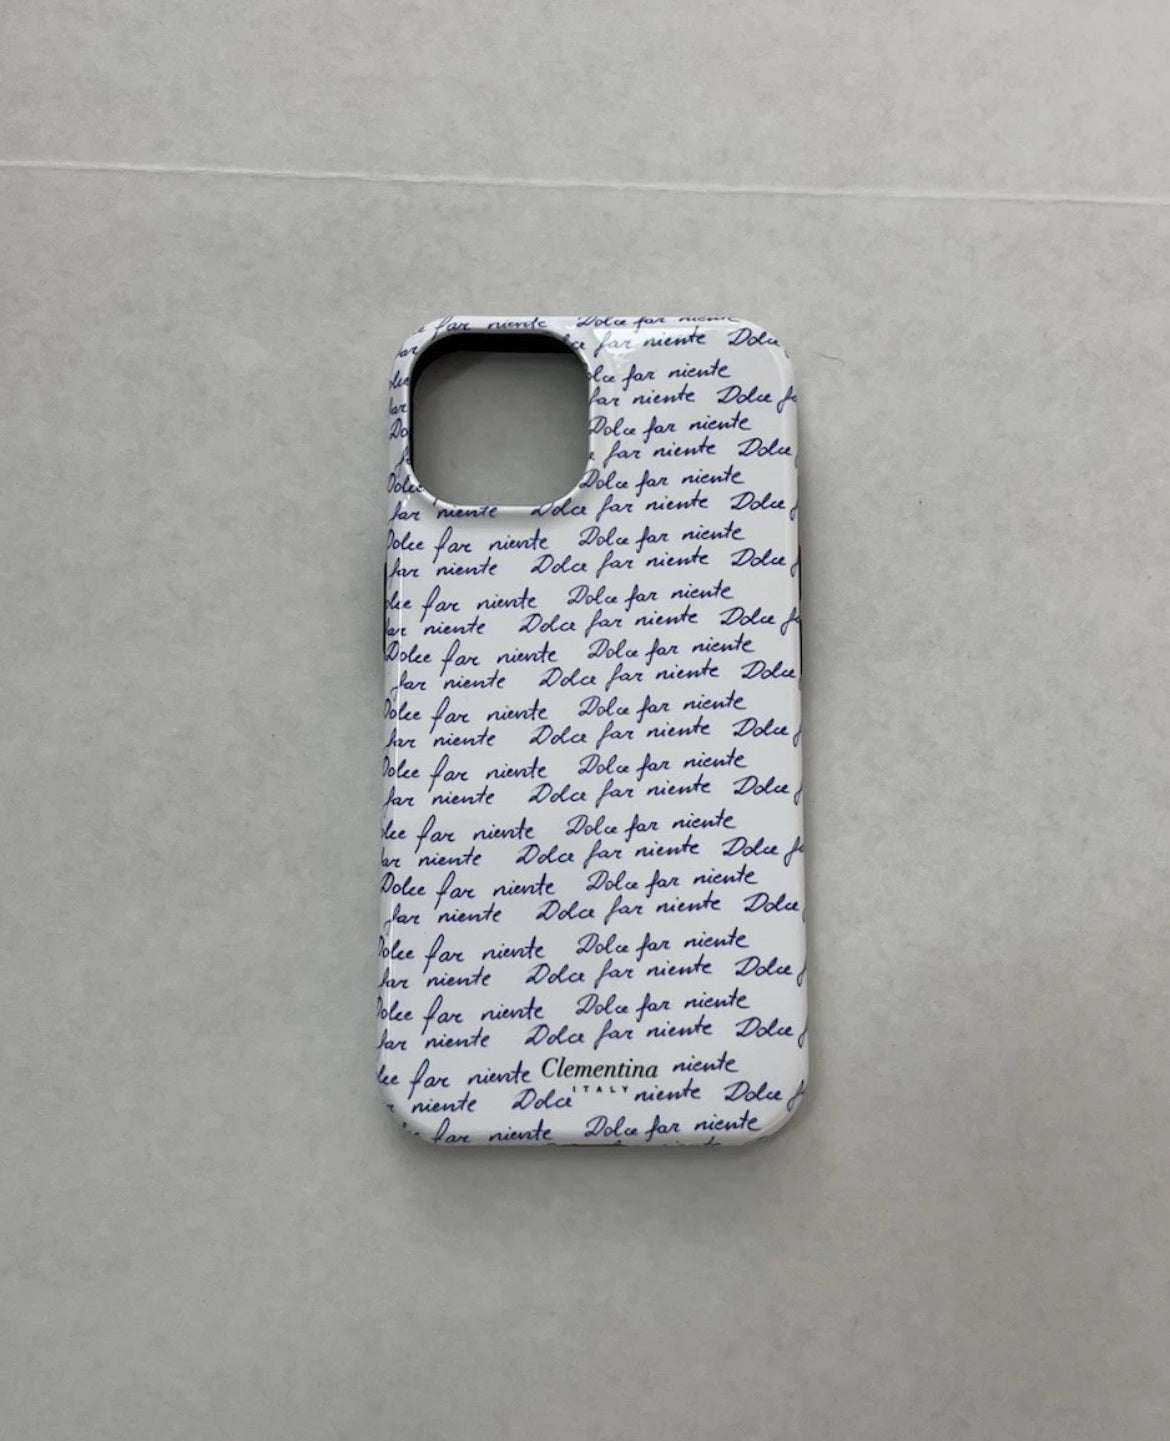 far niente Dolce far niente
far niente Dolce
far niente
far niente Dolce
Dolce far niente
far niente Dolce
Dolce Dolce far niente
far niente Dolce far niente Dolce
Dolce far niente Dolce far niente
far niente Dolce far niente Dolce
far niente Dolce far niente
niente Dolce far niente Dolce
Dolce far niente Dolce far niente
far niente Dolce far niente Dolce
Dolce far niente Dolce far niente
far niente Dolce far niente Dolce
Dolce far niente Dolce far niente
far niente Dolce far niente Dolce
far niente Dolce far niente
niente Dolce far niente Dolce
Dolce far niente Dolce far niente
far niente Dolce far niente Dolce
Dolce far niente Dolce far niente
far niente Dolce far niente Dolce
Dolce far niente Dolce far niente
far niente Dolce far niente Dolce
far niente Clementina niente
ITALY
niente Dolce niente Dolce
far niente Dolce far niente